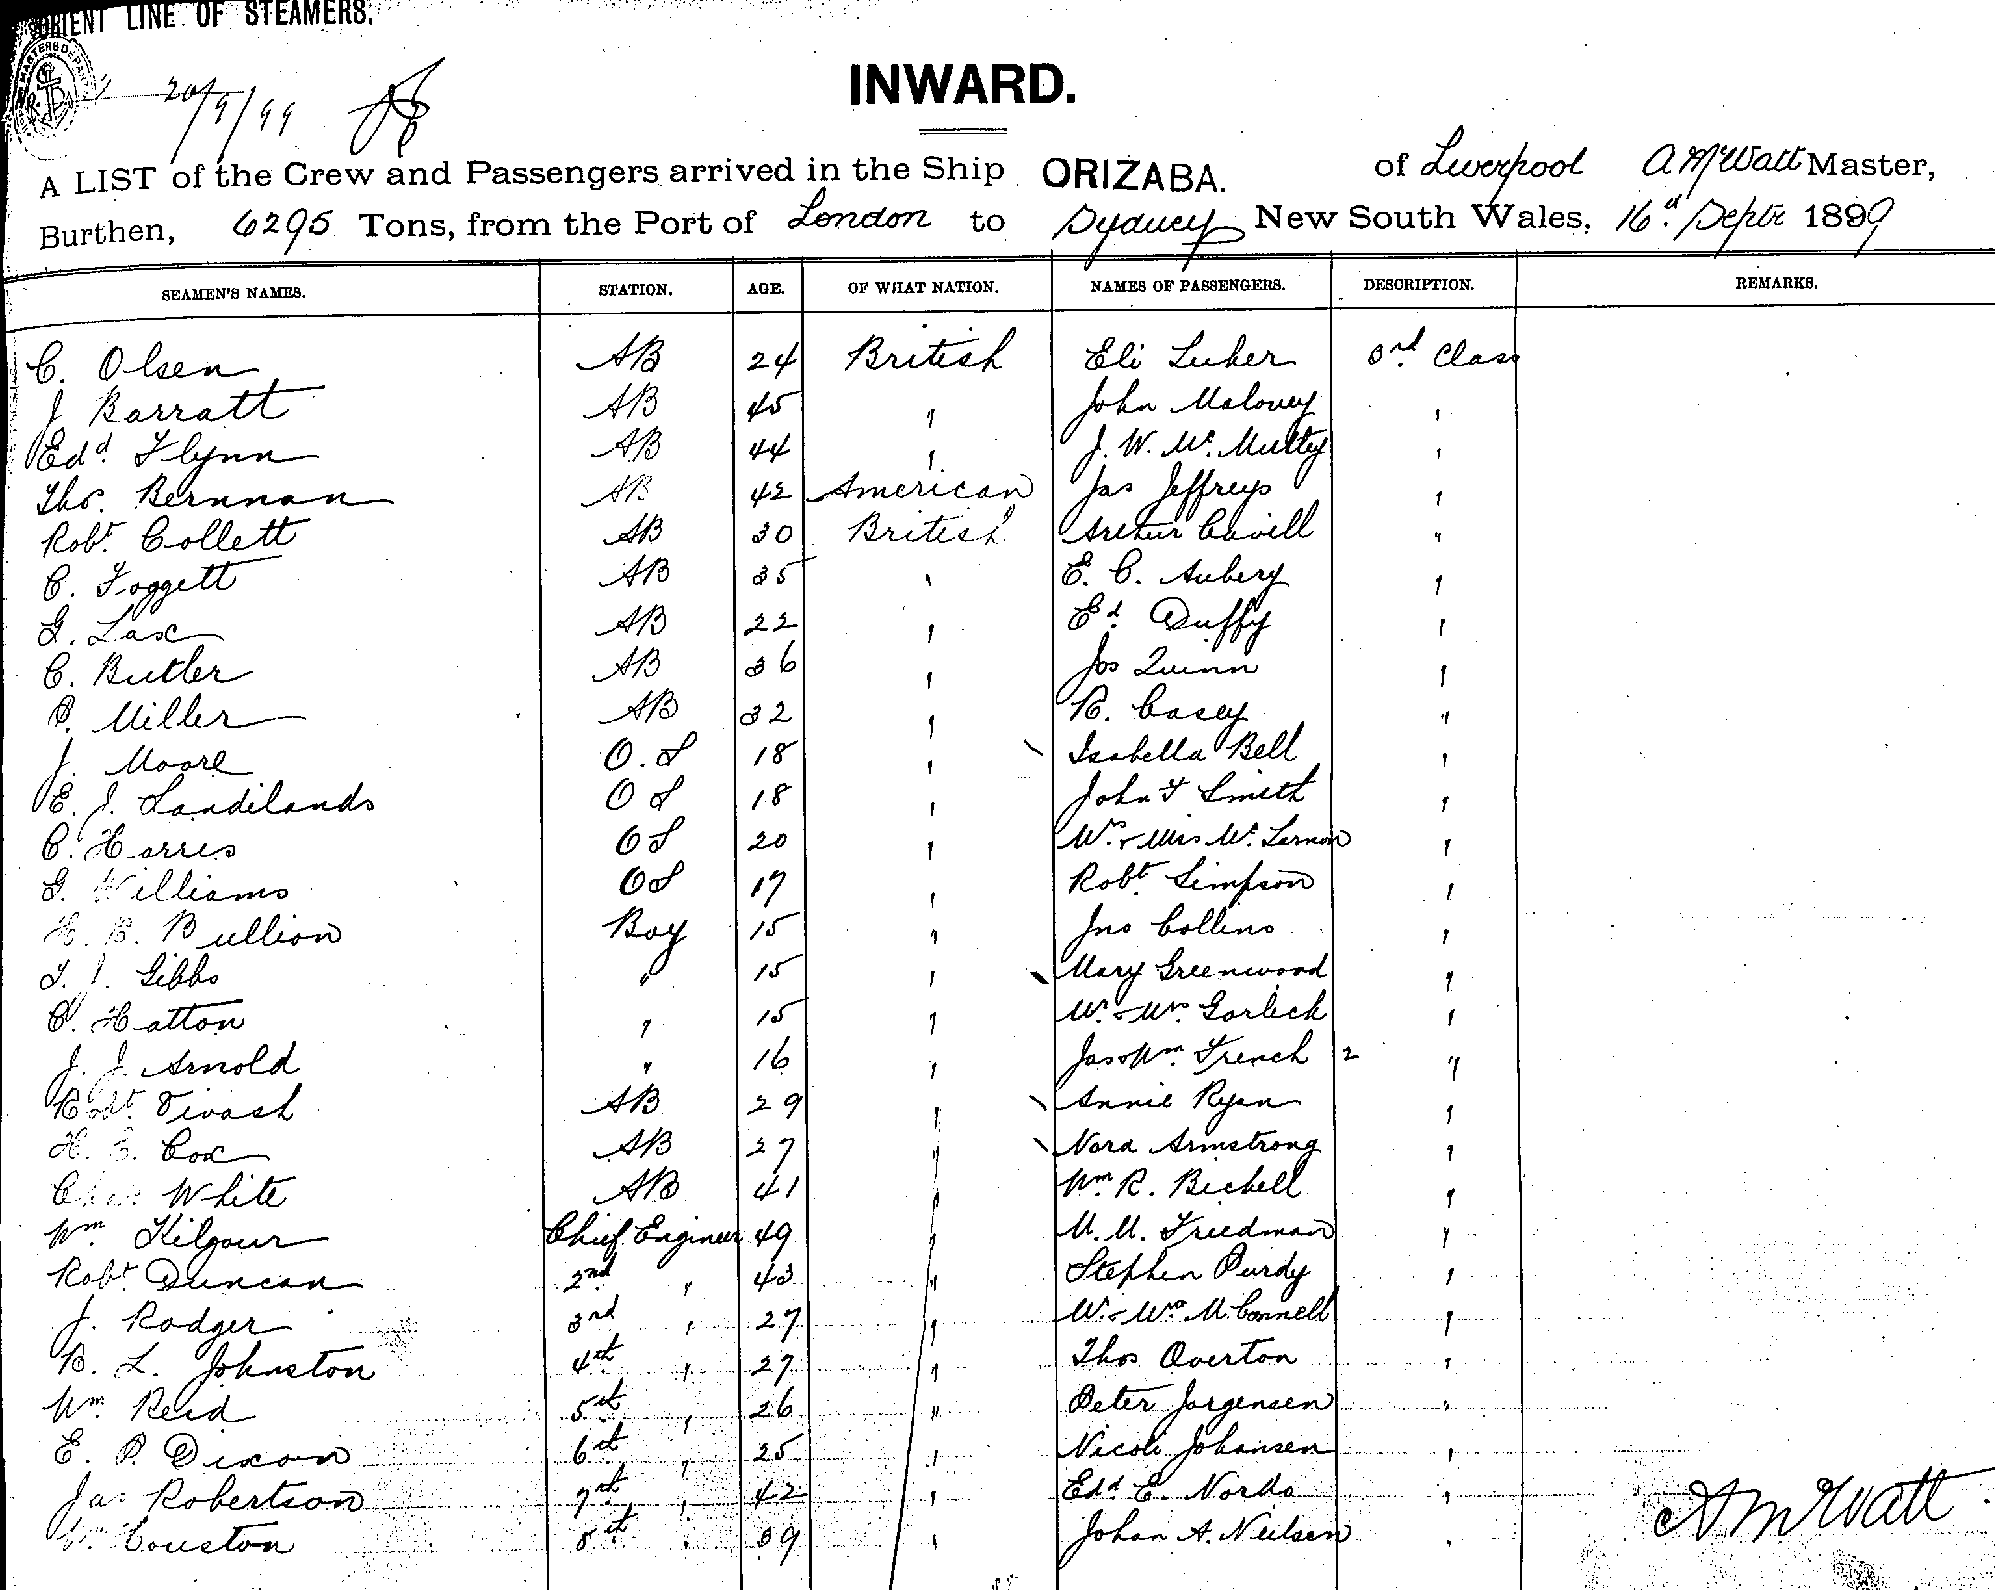 ORIENT LINE OF STEAMERS.
20/9/99
INWARD.
A LIST of the Crew and Passengers arrived in the Ship ORIZABA. of Liverpool A McWatt Master,
Burthen, 6295 Tons, from the Port of London to Sydney New South Wales, 16th Septr 1899
SEAMEN'S NAMES. STATION. AGE. OF WHAT NATION. NAMES OF PASSENGERS. DESCRIPTION. REMARKS.
C. Olsen AB 24 British Eli Luher 3rd Class
J Barratt AB 45 " John Maloney "
Edd. Flynn AB 44 " J. W. Mc "
Thos. Bernnan AB 42 American Jas Jeffreys "
Robt. Collett AB 30 British Arthur Cavill "
C. Foggett AB 35 " E. C. Aubery "
G. Lax AB 22 " Ed. Duffy "
C. Butler AB 36 " Jos Quinn "
P. Miller AB 32 " R. Casey "
J. Moore O.S 18 " Isabella Bell "
E. J. Sandilands O S 18 " John F Smith "
C. Harris O S 20 " "
G. Williams O S 17 " Robt. Simpson "
H. B. Bullion Boy 15 " Jno Collins "
T. J. Gibbs " 15 " Mary Greenwood "
C. Hatton " 15 " Garlick "
J. J. Arnold " 16 " Jas & Wm French 2 "
Robt. AB 29 " Annie Ryan "
H. E. Cox AB 27 " Nora Armstrong "
Chas White AB 41 " Wm. R. Bickell "
Wm. Kilgour Chief Engineer 49 " M. M. Friedman "
Robt Duncan 2nd " 43 " Stephen Purdy "
J. Rodger 3rd " 27 " McConnell "
B. L. Johnston 4th " 27 " Thos Overton "
Wm. Reid 5th " 26 " Peter Jorgensen "
E. P. Dixon 6th " 25 " Nicoli Johansen "
Jas Robertson 7th " 42 " Edd E. Nordo "
Couston 8th " 39 " Johan A. Neilsen "
A McWatt